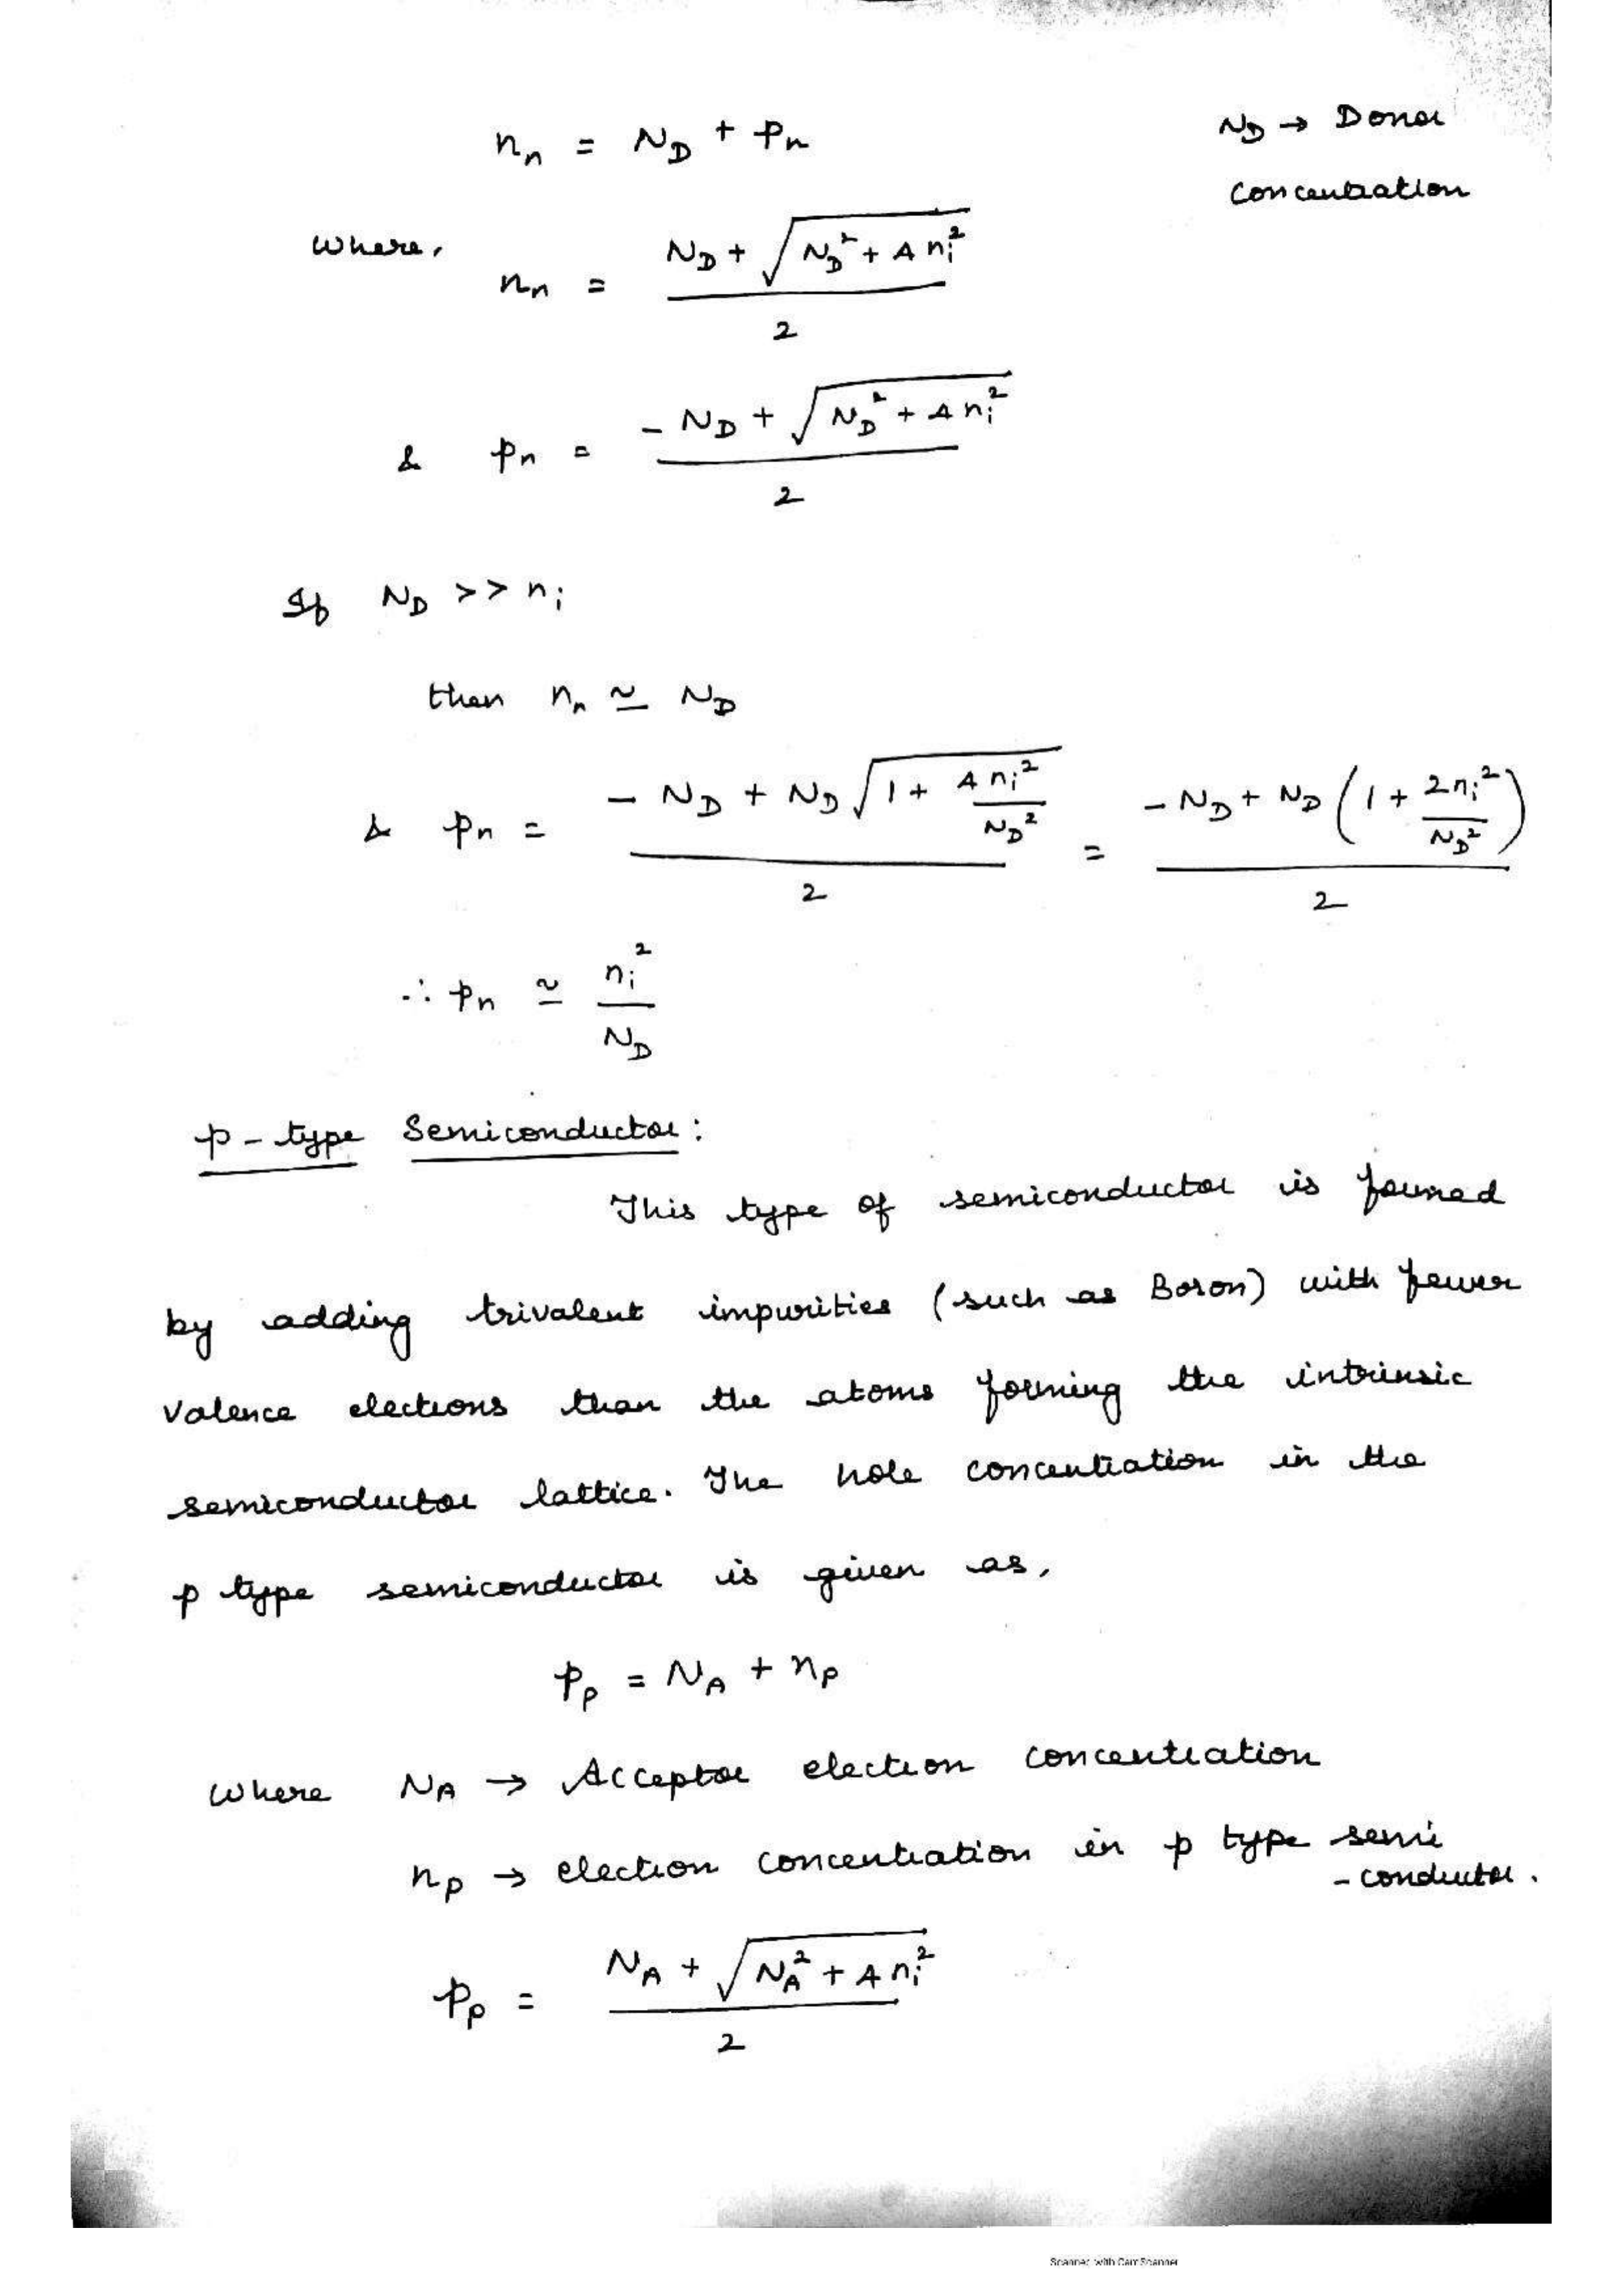 n_n = N_D + p_n
N_D → Donor
Concentration
Where, n_n = (N_D + √(N_D² + 4n_i²)) / 2
& p_n = (-N_D + √(N_D² + 4n_i²)) / 2
If N_D >> n_i
then n_n ≃ N_D
& p_n = (-N_D + N_D √(1 + 4n_i²/N_D²)) / 2 = (-N_D + N_D (1 + 2n_i²/N_D²)) / 2
∴ p_n ≃ n_i² / N_D
p-type Semiconductor:
This type of semiconductor is formed
by adding trivalent impurities (such as Boron) with fewer
valence electrons than the atoms forming the intrinsic
semiconductor lattice. The hole concentration in the
p type semiconductor is given as,
p_p = N_A + n_p
Where N_A → Acceptor electron concentration
n_p → electron concentration in p type semi
-conductor.
p_p = (N_A + √(N_A² + 4n_i²)) / 2
Scanned with CamScanner